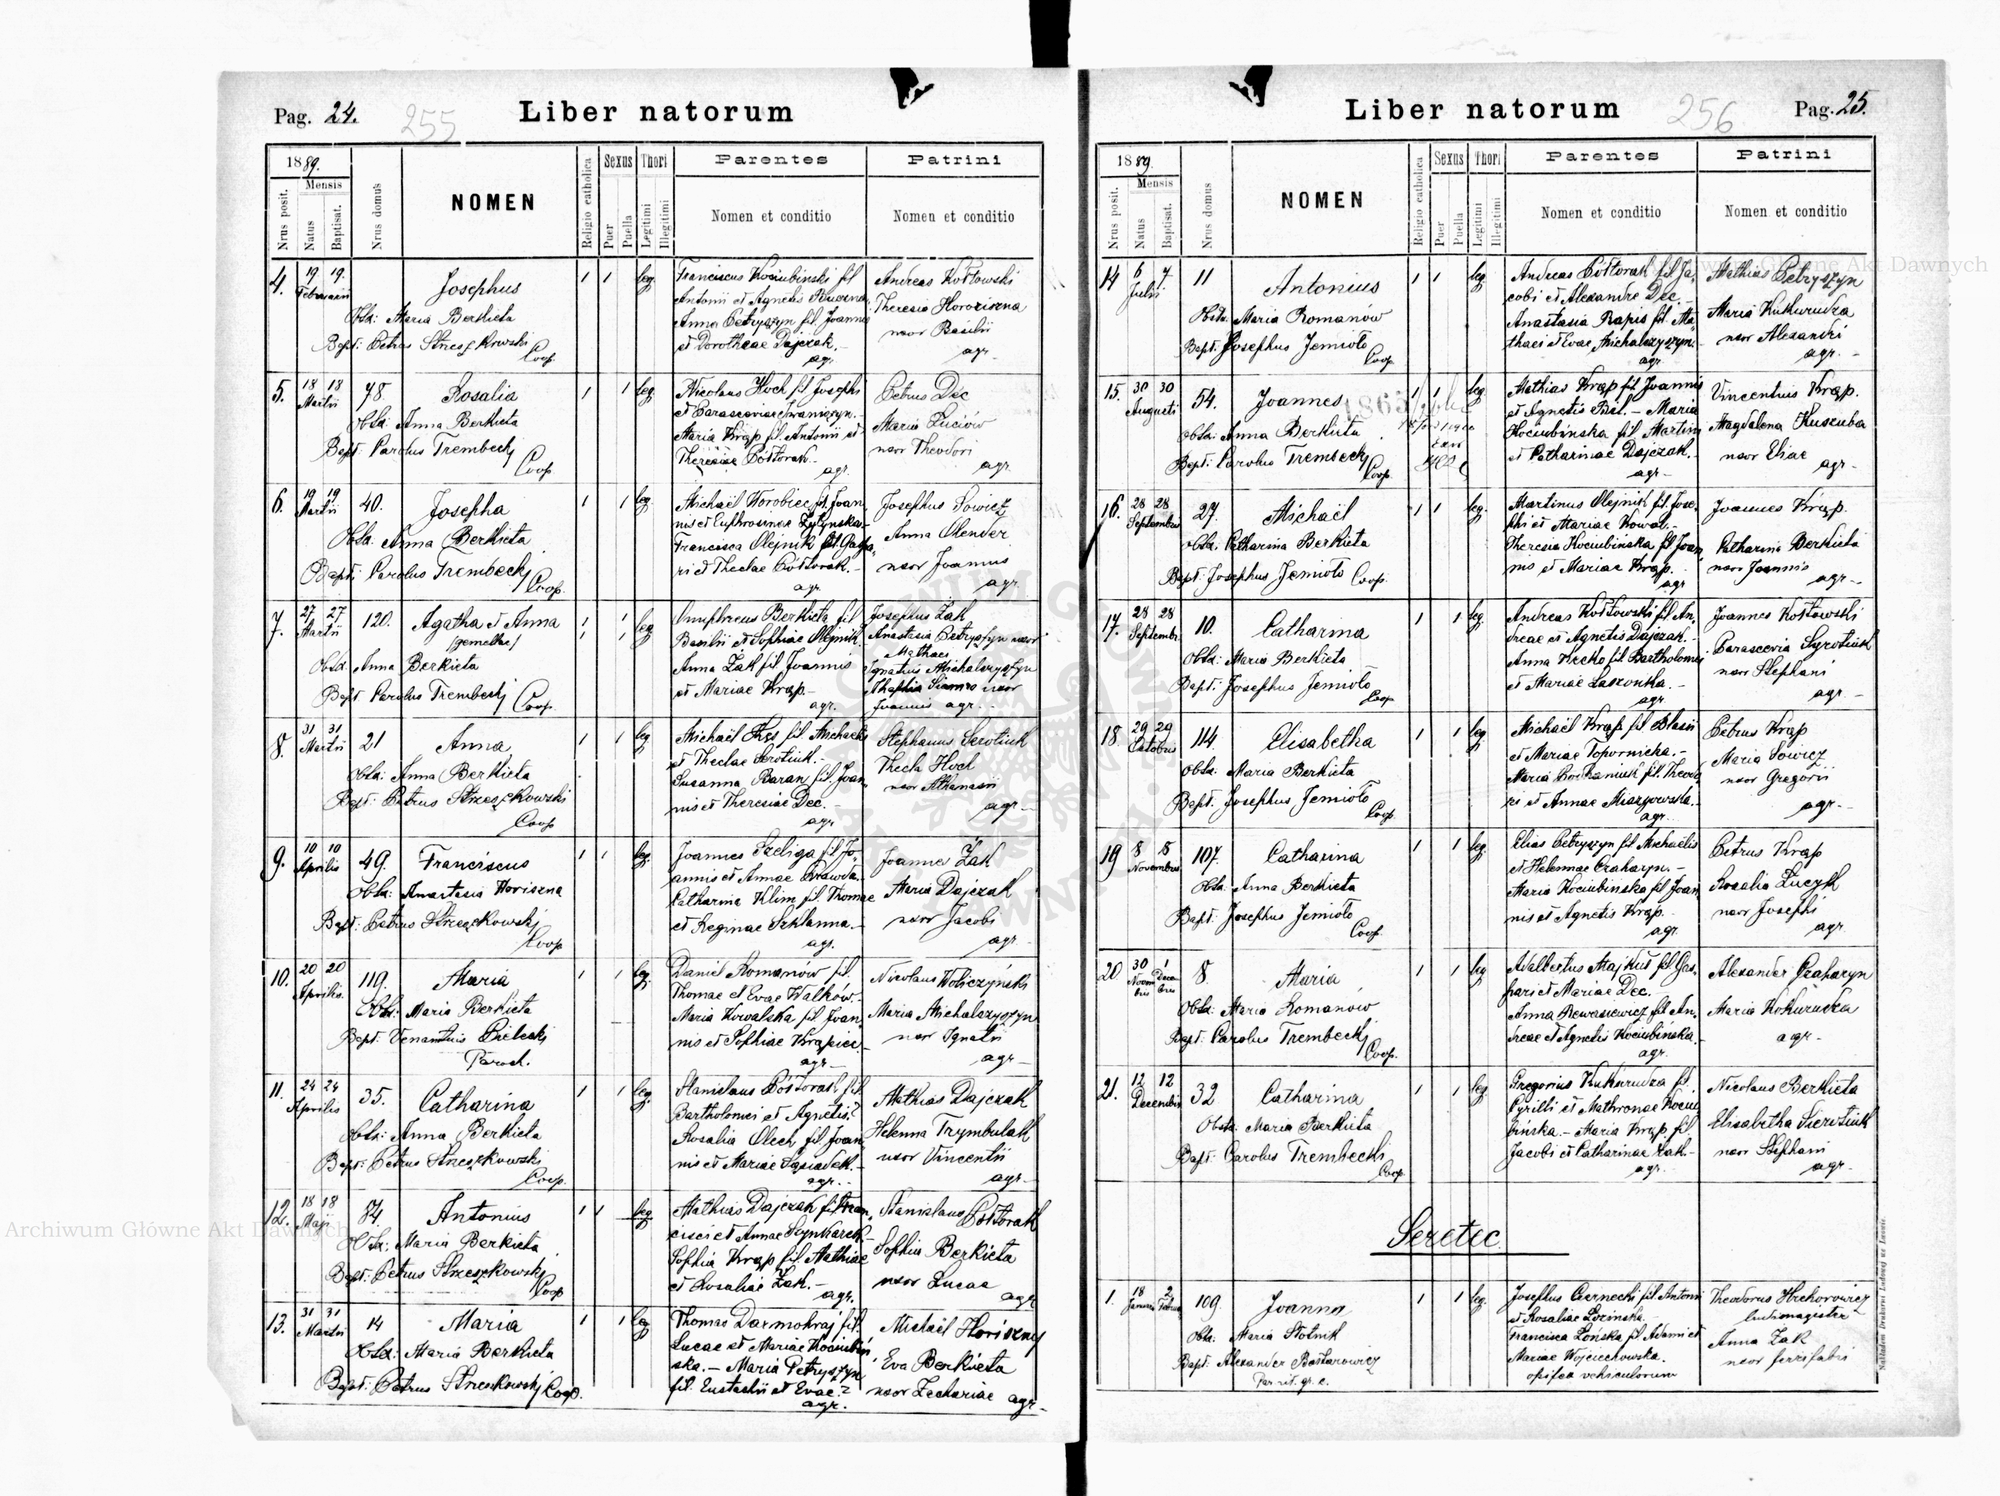 Pag. 24.
255
Liber natorum
1889.
Mensis
Nrus posit.
Natus
Baptisat.
Nrus domus
NOMEN
Religio catholica
Sexus
Puer
Puella
Thori
Legitimi
Illegitimi
Parentes
Nomen et conditio
Patrini
Nomen et conditio
4. 19 19. Februarii
Josephus
Obst: Maria Berkieta
Bapt: Petrus Strzeszkowski
Coop
1 1 leg
Franciscus Kociubinski fil
Antonii et Agnetis
Anna Petryszyn fil Joannis
et Dorotheae Dajczak.
agr.
Andreas Kostowski
Theresia Horoziszna
uxor Basilii
agr.
5. 18 18 Martii 78.
Rosalia
Obst. Anna Berkieta
Bapt: Carolus Trembecki
Coop
1 1 leg
Nicolaus Hoch fil Josephi
et Parasceviae Iwaniszyn.
Maria Krąp fil. Antonii et
Theresiae Półtorak.
agr.
Petrus Dec
Maria Luciów
uxor Theodori
agr.
6. 19 19 Martii 40.
Josepha
Obst. Anna Berkieta
Bapt: Carolus Trembecki
Coop.
1 1 leg.
Michaël Worobiec fil. Joan
nis et Euphrosinae Żytynska
Francisca Olejnik fil. Gaspa,
ri et Theclae Półtorak.
agr.
Josephus Sowicz
Anna Olender
uxor Joannis
agr.
7. 27 27 Martii 120.
Agatha et Anna
/gemellae/
Obst. Anna Berkieta
Bapt Carolus Trembecki Coop.
1 1 1 1 leg
Onuphreus Berkieta fil
Basilii et Sophiae Olejnik.
Anna Żak fil Joannis
et Mariae Krąp.
agr.
Josephus Żak
Anastasia Petryszyn uxor
Mathaei
Ignatius Michalczyszyn
uxor
Joannis agr.
8. 31 31 Martii 21
Anna
Obst: Anna Berkieta
Bapt: Petrus Strzeszkowski
Coop
1 1 leg
Michaël Kes fil Michaelis
et Theclae Serotiuk.
Susanna Baran fil. Joan
nis et Theresiae Dec.
agr
Stephanus Serotiuk
Thecla Hoch
uxor Athanasii
agr.
9. 10 10 Aprilis 49.
Franciscus
Obst: Anastasia Horiszna
Bapt: Petrus Strzeszkowski
Coop
1 1 leg.
Joannes Szeliga fil Jo,
annis et Annae Prawda.
Catharina Klim fil. Thomae
et Reginae Szklanna.
agr.
Joannes Żak
Maria Dajczak
uxor Jacobi
agr.
10. 20 20 Aprilis. 119.
Maria
Obst: Maria Berkieta
Bapt: Venantius Bielecki
Paroch.
1 1 leg.
Daniel Romanów fil.
Thomae et Evae Walków.
Maria Kowalska fil Joan,
nis et Sophiae Krąpiec.
agr
Nicolaus Woliczyński
Maria Michalczyszyn
uxor Ignatii
agr
11. 24 24 Aprilis 35.
Catharina
Obst: Anna Berkieta
Bapt: Petrus Strzeszkowski
Coop.
1 1 leg.
Stanislaus Półtorak fil.
Bartholomei et Agnetis?
Rosalia Olech fil. Joan
nis et Mariae Sąsiadek.
agr.
Mathias Dajczak
Helenna Trymbulak
uxor Vincentii
agr.
12. 18 18 Maji 84.
Antonius
Obst: Maria Berkieta
Bapt: Petrus Strzeszkowski
Coop
1 1 leg
Mathias Dajczak fil Fran,
cisci et Annae Szynkarek
Sophia Krąp fil. Mathiae
et Rosaliae Żak.
agr.
Stanislaus Półtorak
Sophia Berkieta
uxor Lucae
agr
13. 31 31 Martii 14
Maria
Obst: Maria Berkieta
Bapt: Petrus Strzeszkowski Coop.
1 1 leg
Thomas Darmohraj fil.
Lucae et Mariae Kociubiń,
ska. — Maria Petryszyn
fil. Eustachii et Evae?
agr.
Michaël Horiszny
Eva Berkieta
uxor Zachariae agr
Liber natorum
256
Pag. 25.
1889.
Mensis
Nrus posit.
Natus
Baptisat.
Nrus domus
NOMEN
Religio catholica
Sexus
Puer
Puella
Thori
Legitimi
Illegitimi
Parentes
Nomen et conditio
Patrini
Nomen et conditio
14 6 7 Julii 11
Antonius
Obst. Maria Romanów
Bapt: Josephus Jemioło
Coop
1 1 leg
Andreas Półtorak fil Ja,
cobi et Alexandre Dec.
Anastasia Rapis fil Ma
thaei et Evae Michalczyszyn.
agr.
Mathias Petryszyn
Maria Kukurudza
uxor Alexandri
agr.
15. 30 30 Augusti 54.
Joannes
Obst: Anna Berkieta
Bapt: Carolus Trembecki
Coop
1 1 leg.
Mathias Krąp fil Joannis
et Agnetis Bal. — Maria
Kociubińska fil. Martini
et Catharinae Dajczak.
agr
Vincentius Krąp.
Magdalena Kuszuba
uxor Eliae
agr
16. 28 28 Septembris 27.
Michaël
Obst: Catharina Berkieta
Bapt: Josephus Jemioło Coop.
1 1 leg.
Martinus Olejnik fil. Jose,
phi et Mariae Kowal.
Theresia Kociubińska fil Joan
nis et Mariae Krąp.
agr
Joannes Krąp.
Catharina Berkieta
uxor Joannis
agr
17. 28 28 Septembr. 10.
Catharina
Obst: Maria Berkieta
Bapt: Josephus Jemioło
Coop
1 1 leg
Andreas Kostowski fil An,
dreae et Agnetis Dajczak.
Anna Krcho fil Bartholomei
et Mariae Laszonka.
agr.
Joannes Kostowski
Parascevia Syrotiuk
uxor Stephani
agr.
18. 29 29 Octobris 114
Elisabetha
Obst: Maria Berkieta
Bapt: Josephus Jemioło
Coop.
1 1 leg
Michaël Krąp fil Blasii
et Mariae Topornicka.
Maria fil. Theodo
ri et Annae
agr.
Petrus Krąp
Maria Sowicz
uxor Gregorii
agr.
19 8 8 Novembris 107.
Catharina
Obst. Anna Berkieta
Bapt: Josephus Jemioło
Coop.
1 1 leg.
Elias Petryszyn fil Michaelis
et Helennae Czaharyn.
Maria Kociubinska fil Joan
nis et Agnetis Krąp.
agr.
Petrus Krąp
Rosalia Luczyk
uxor Josephi
agr.
20 30 Novem bris 1 Decem bris 8.
Maria
Obst. Maria Romanów
Bapt: Carolus Trembecki
Coop.
1 1 leg
Adalbertus Majkut fil Gas,
pari et Mariae Dec.
Anna Rewasiewicz fil An,
dreae et Agnetis Kociubińska.
agr.
Alexander Czaharyn
Maria Kukurudza
agr.
21. 12 12 Decembris 32
Catharina
Obst: Maria Berkieta
Bapt: Carolus Trembecki
Coop.
1 1 leg.
Gregorius Kukurudza fil.
Cyrilli et Mathronae Kociu
bińska. — Maria Krąp. fil
Jacobi et Catharinae Żak.
agr.
Nicolaus Berkieta
Elisabetha Sierotiuk
uxor Stephani
agr
Seretec
1. 18 Januarii 2 Februar 109.
Joanna
Obst: Maria Stotnik
Bapt: Alexander Bostarowicz
Par rit. gr. c.
1 1 leg.
Josephus Czernecki fil. Antonii
et Rosaliae Łozinska.
Francisca Łońska fil Adami et
Mariae Wojciechowska.
opifex vehiculorum
Theodorus Hrehorowicz
ludimagister
Anna Żak
uxor
Nakładem Drukarni Ludowej we Lwowie.
Archiwum Główne Akt Dawnych
Archiwum Główne Akt Dawnych